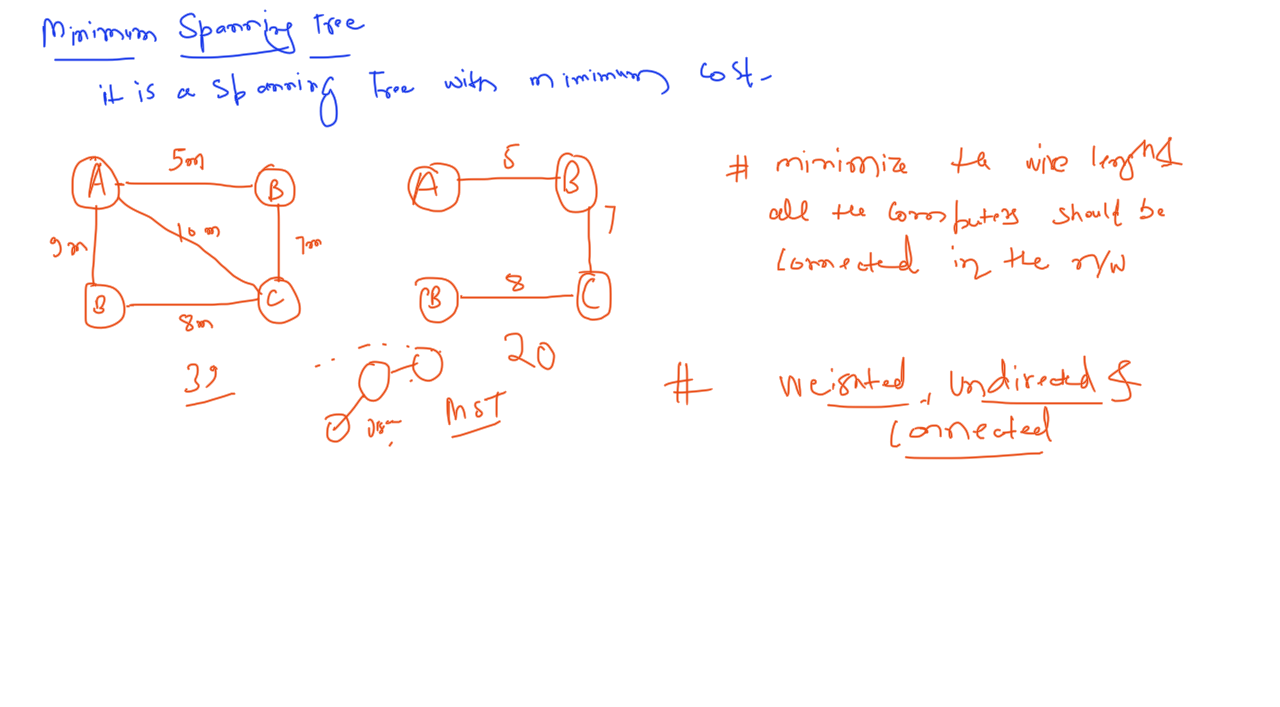 Minimum Spanning Tree
it is a spanning Tree with minimum cost.
A 5m B
9m 10m 7m
B 8m C
39
A 5 B
7
B 8 C
20
MST
# minimize the wire length &
all the computers should be
connected in the n/w
# Weighted, Undirected &
Connected